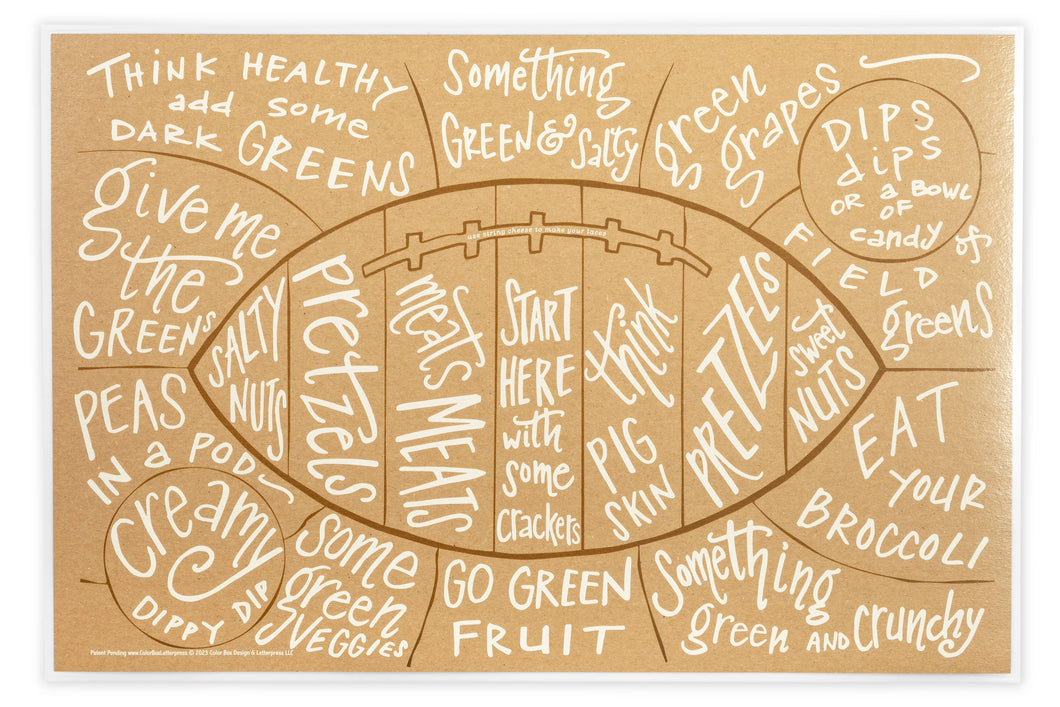 THINK HEALTHY
add some
DARK GREENS
Something
GREEN & Salty
green
grapes
DIPS
dips
OR a BOWL
OF
candy
give me
the
GREENS
use string cheese to make your laces
SALTY
NUTS
pretzels
meats
MEATS
START
HERE
with
some
crackers
think
PIG
SKIN
PRETZELS
sweet
NUTS
FIELD of
greens
PEAS
IN a PODS
EAT
YOUR
BROCCOLI
creamy
DIPPY DIP
some
green
VEGGIES
GO GREEN
FRUIT
Something
green AND crunchy
Patent Pending www.ColorBoxLetterpress © 2023 Color Box Design & Letterpress LLC